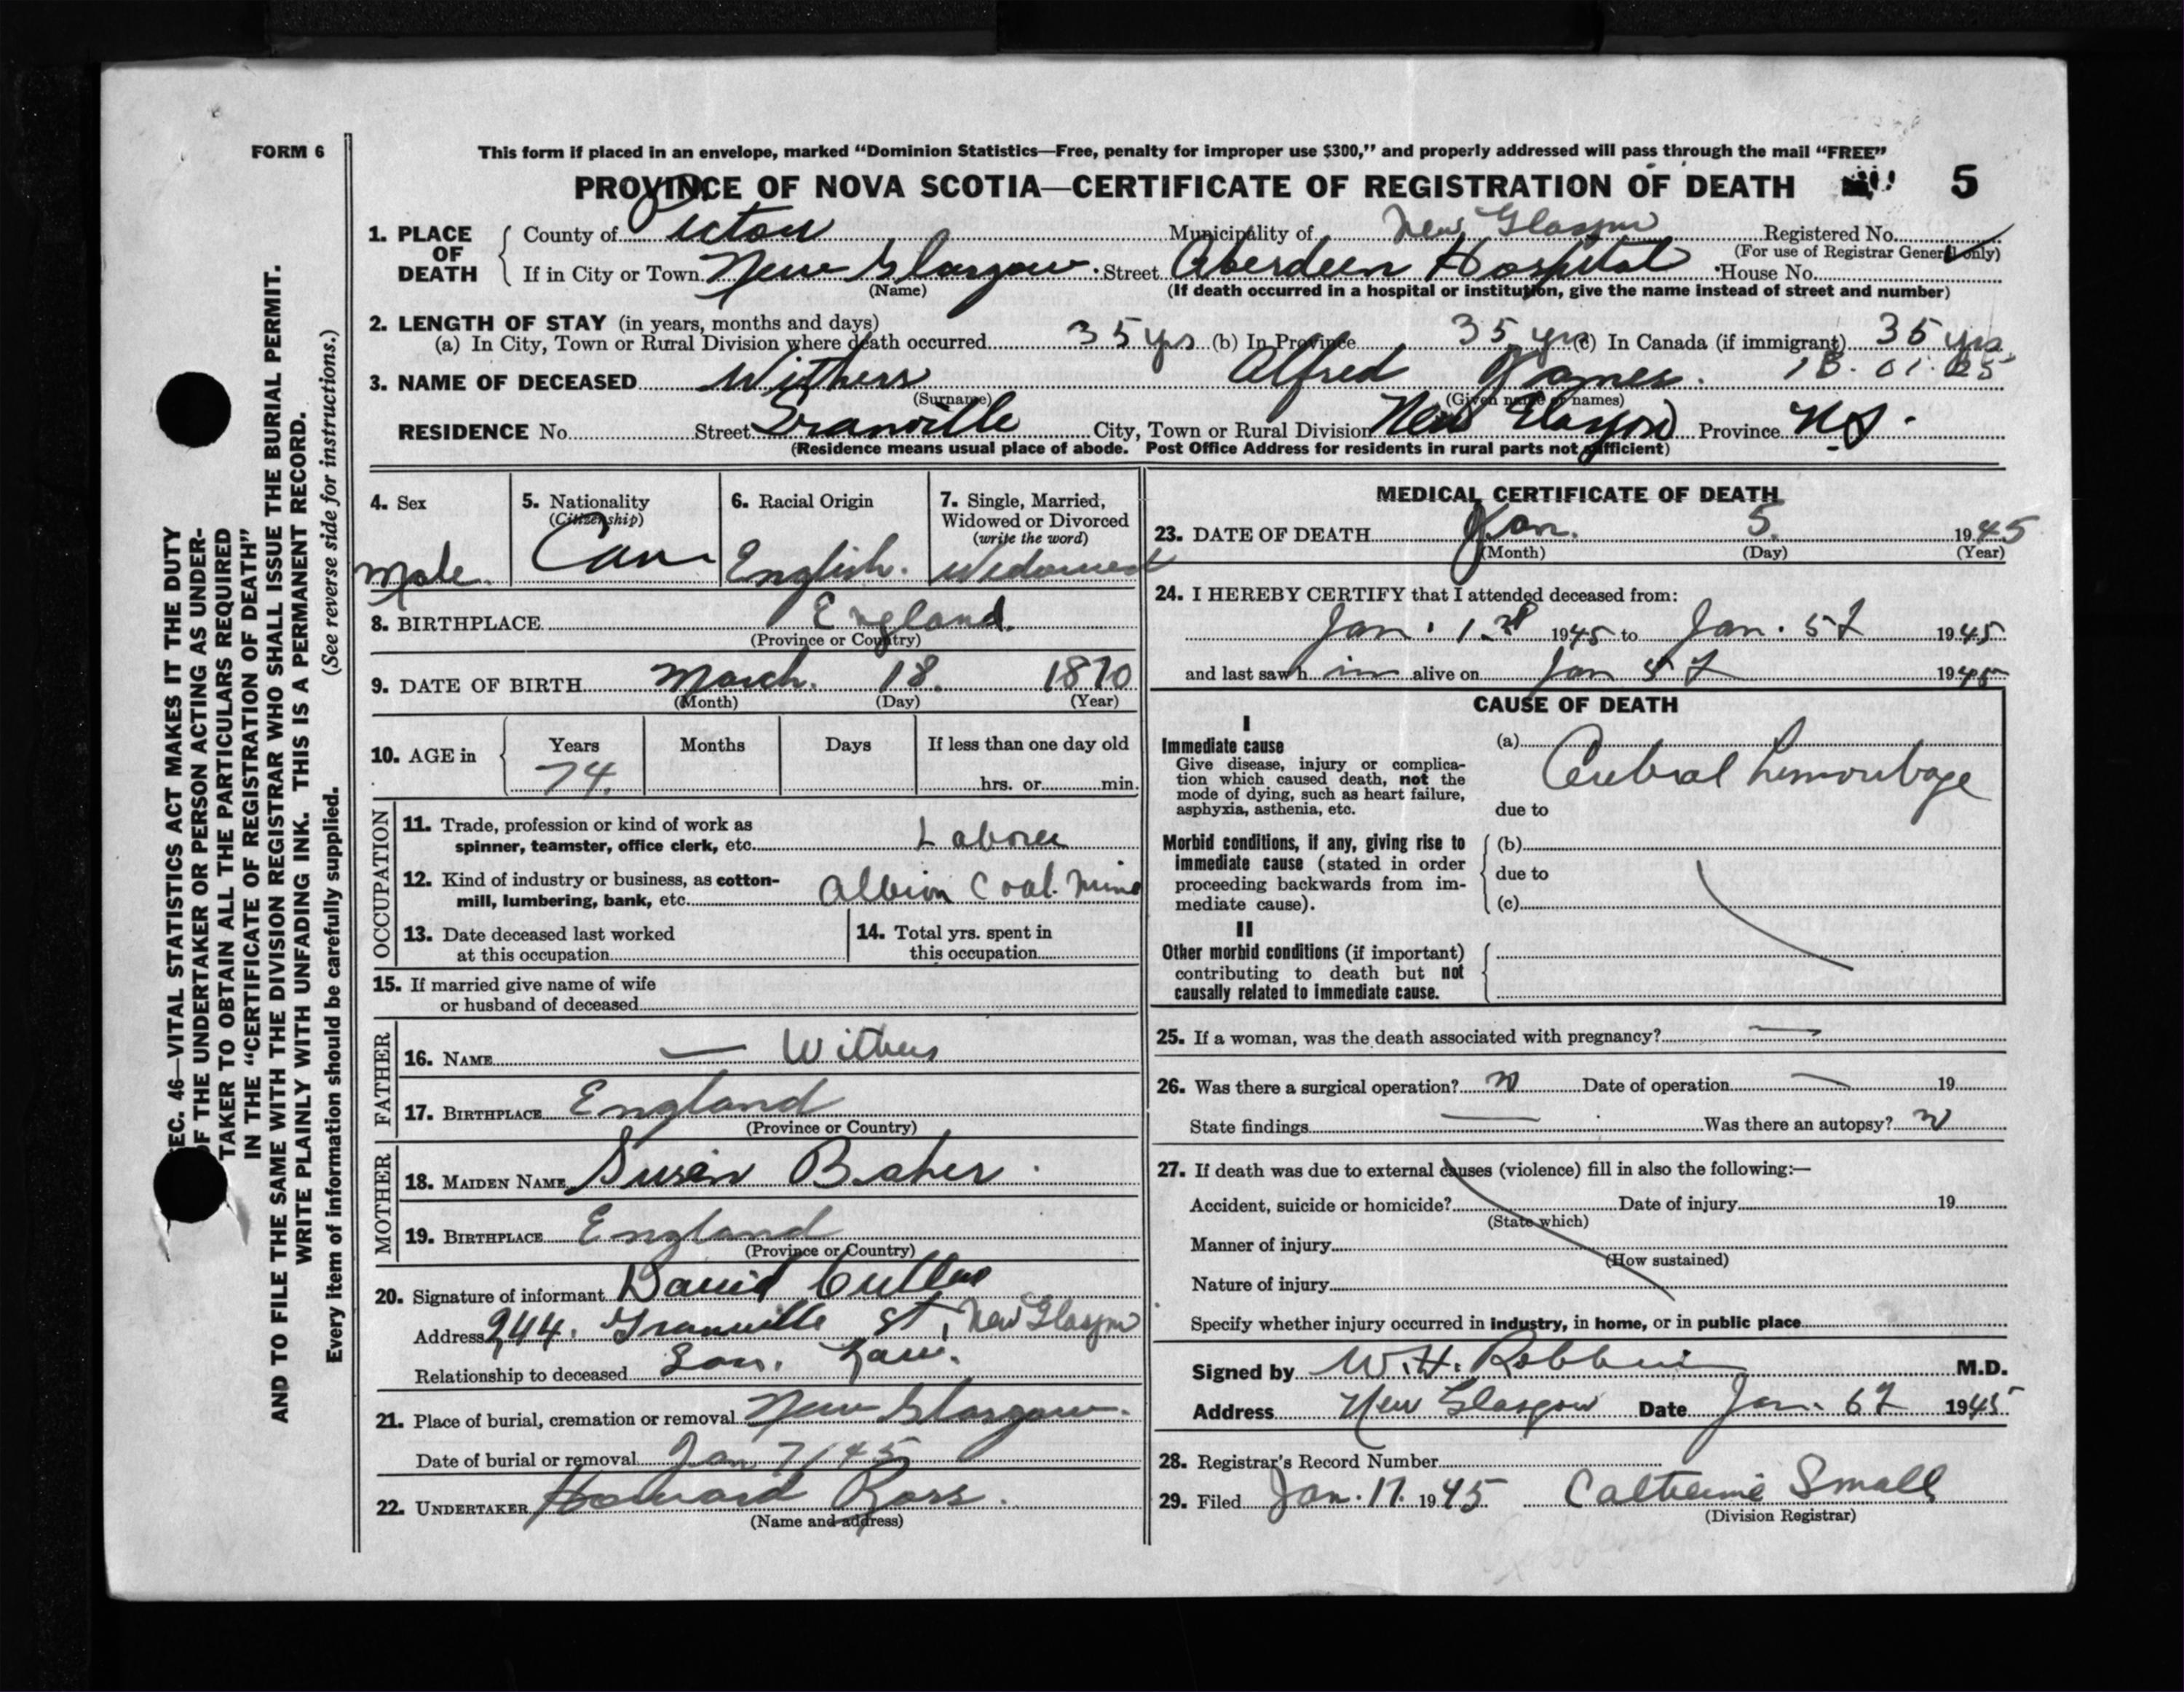 FORM 6
This form if placed in an envelope, marked “Dominion Statistics—Free, penalty for improper use $300,” and properly addressed will pass through the mail “FREE”
PROVINCE OF NOVA SCOTIA—CERTIFICATE OF REGISTRATION OF DEATH 5
1. PLACE OF DEATH County of Pictou Municipality of New Glasgow Registered No.
(For use of Registrar General only)
If in City or Town New Glasgow Street Aberdeen Hospital House No.
(Name) (If death occurred in a hospital or institution, give the name instead of street and number)
2. LENGTH OF STAY (in years, months and days)
(a) In City, Town or Rural Division where death occurred 35 yrs (b) In Province 35 yrs (c) In Canada (if immigrant) 35 yrs
3. NAME OF DECEASED Withers Alfred James.
(Surname) (Given name or names)
RESIDENCE No. Street Granville City, Town or Rural Division New Glasgow Province N.S.
(Residence means usual place of abode. Post Office Address for residents in rural parts not sufficient)
4. Sex
Male.
5. Nationality
(Citizenship)
Can
6. Racial Origin
English.
7. Single, Married,
Widowed or Divorced
(write the word)
Widowed
8. BIRTHPLACE England.
(Province or Country)
9. DATE OF BIRTH March. 18. 1870
(Month) (Day) (Year)
10. AGE in Years Months Days If less than one day old
74. hrs. or min.
OCCUPATION
11. Trade, profession or kind of work as
spinner, teamster, office clerk, etc. Laborer
12. Kind of industry or business, as cotton-
mill, lumbering, bank, etc. Albion Coal Mine
13. Date deceased last worked
at this occupation
14. Total yrs. spent in
this occupation
15. If married give name of wife
or husband of deceased
FATHER
16. NAME — Withers
17. BIRTHPLACE England
(Province or Country)
MOTHER
18. MAIDEN NAME Susan Baker.
19. BIRTHPLACE England
(Province or Country)
20. Signature of informant David Cutler
Address 244. Granville St, New Glasgow
Relationship to deceased Son. Law.
21. Place of burial, cremation or removal New Glasgow.
Date of burial or removal Jan 7/45
22. UNDERTAKER Howard Ross.
(Name and address)
MEDICAL CERTIFICATE OF DEATH
23. DATE OF DEATH Jan. 5. 1945
(Month) (Day) (Year)
24. I HEREBY CERTIFY that I attended deceased from:
Jan. 1st 1945 to Jan. 5th 1945
and last saw him alive on Jan 5th 1945
CAUSE OF DEATH
I
Immediate cause
Give disease, injury or complica-
tion which caused death, not the
mode of dying, such as heart failure,
asphyxia, asthenia, etc.
(a) Cerebral hemorrhage
due to
Morbid conditions, if any, giving rise to
immediate cause (stated in order
proceeding backwards from im-
mediate cause).
(b)
due to
(c)
II
Other morbid conditions (if important)
contributing to death but not
causally related to immediate cause.
25. If a woman, was the death associated with pregnancy? —
26. Was there a surgical operation? no Date of operation — 19
State findings — Was there an autopsy? no
27. If death was due to external causes (violence) fill in also the following:—
Accident, suicide or homicide? Date of injury 19
(State which)
Manner of injury
(How sustained)
Nature of injury
Specify whether injury occurred in industry, in home, or in public place
Signed by W. H. Robbins M.D.
Address New Glasgow Date Jan. 6th 1945
28. Registrar's Record Number
29. Filed Jan. 17. 1945 Catherine Small
(Division Registrar)
SEC. 46—VITAL STATISTICS ACT MAKES IT THE DUTY
OF THE UNDERTAKER OR PERSON ACTING AS UNDER-
TAKER TO OBTAIN ALL THE PARTICULARS REQUIRED
IN THE “CERTIFICATE OF REGISTRATION OF DEATH”
AND TO FILE THE SAME WITH THE DIVISION REGISTRAR WHO SHALL ISSUE THE BURIAL PERMIT.
WRITE PLAINLY WITH UNFADING INK. THIS IS A PERMANENT RECORD.
Every item of information should be carefully supplied. (See reverse side for instructions.)